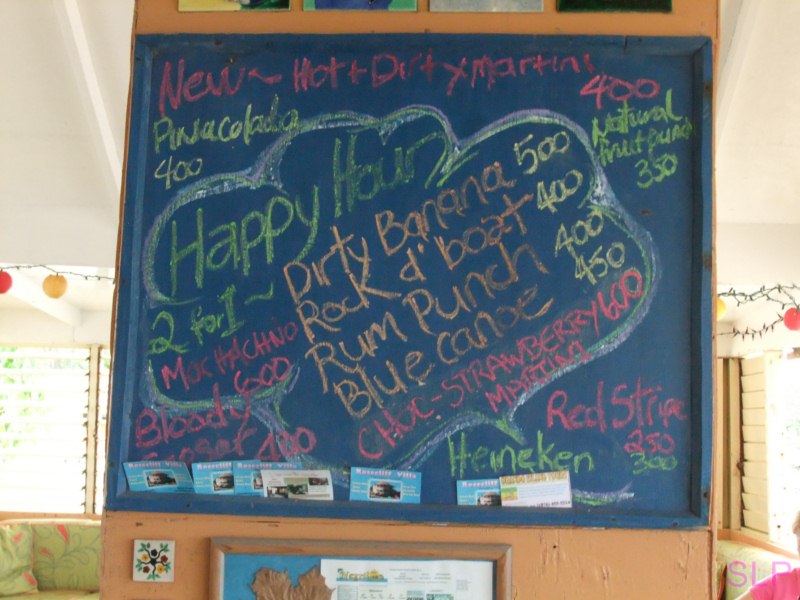 New ~ Hot + Dirty Martini 400
Pinacolada
400
Natural
Fruit Punch
350
Happy Hour
2 for 1 ~
Dirty Banana 500
Rock d' boat 400
Rum Punch 400
Blue canoe 450
MOCHACHINO
600
CHOC-STRAWBERRY 600
MARTINI
Bloody
400
Red Stripe
250
Heineken 300
Rosecliff Villa
Rosecliff Villa
Rosecliff Villa
Rosecliff Villa
SLP